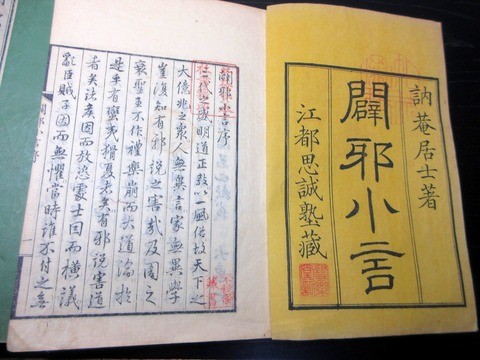 訥菴居士著
闢邪小言
江都思誠塾藏
闢邪小言序
在三代之盛明道正敎一風俗故天下之
大億兆之衆人無異言家無異學
豈復知有邪說之害哉及周之
衰聖王不作禮樂崩而大道淪於
是乎有蠻夷猾夏者矣有邪說害道
者矣諸侯因而放恣處士因而橫議
亂臣賊子因而無懼當時誰不付之無